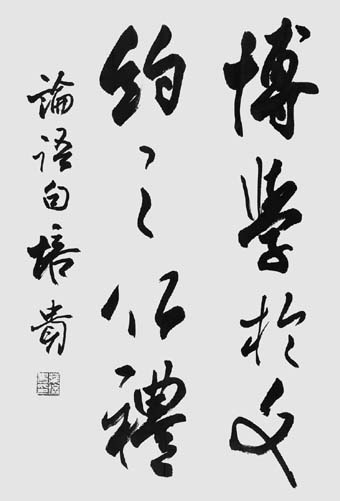 博學於文
約之以禮
論語句培貴